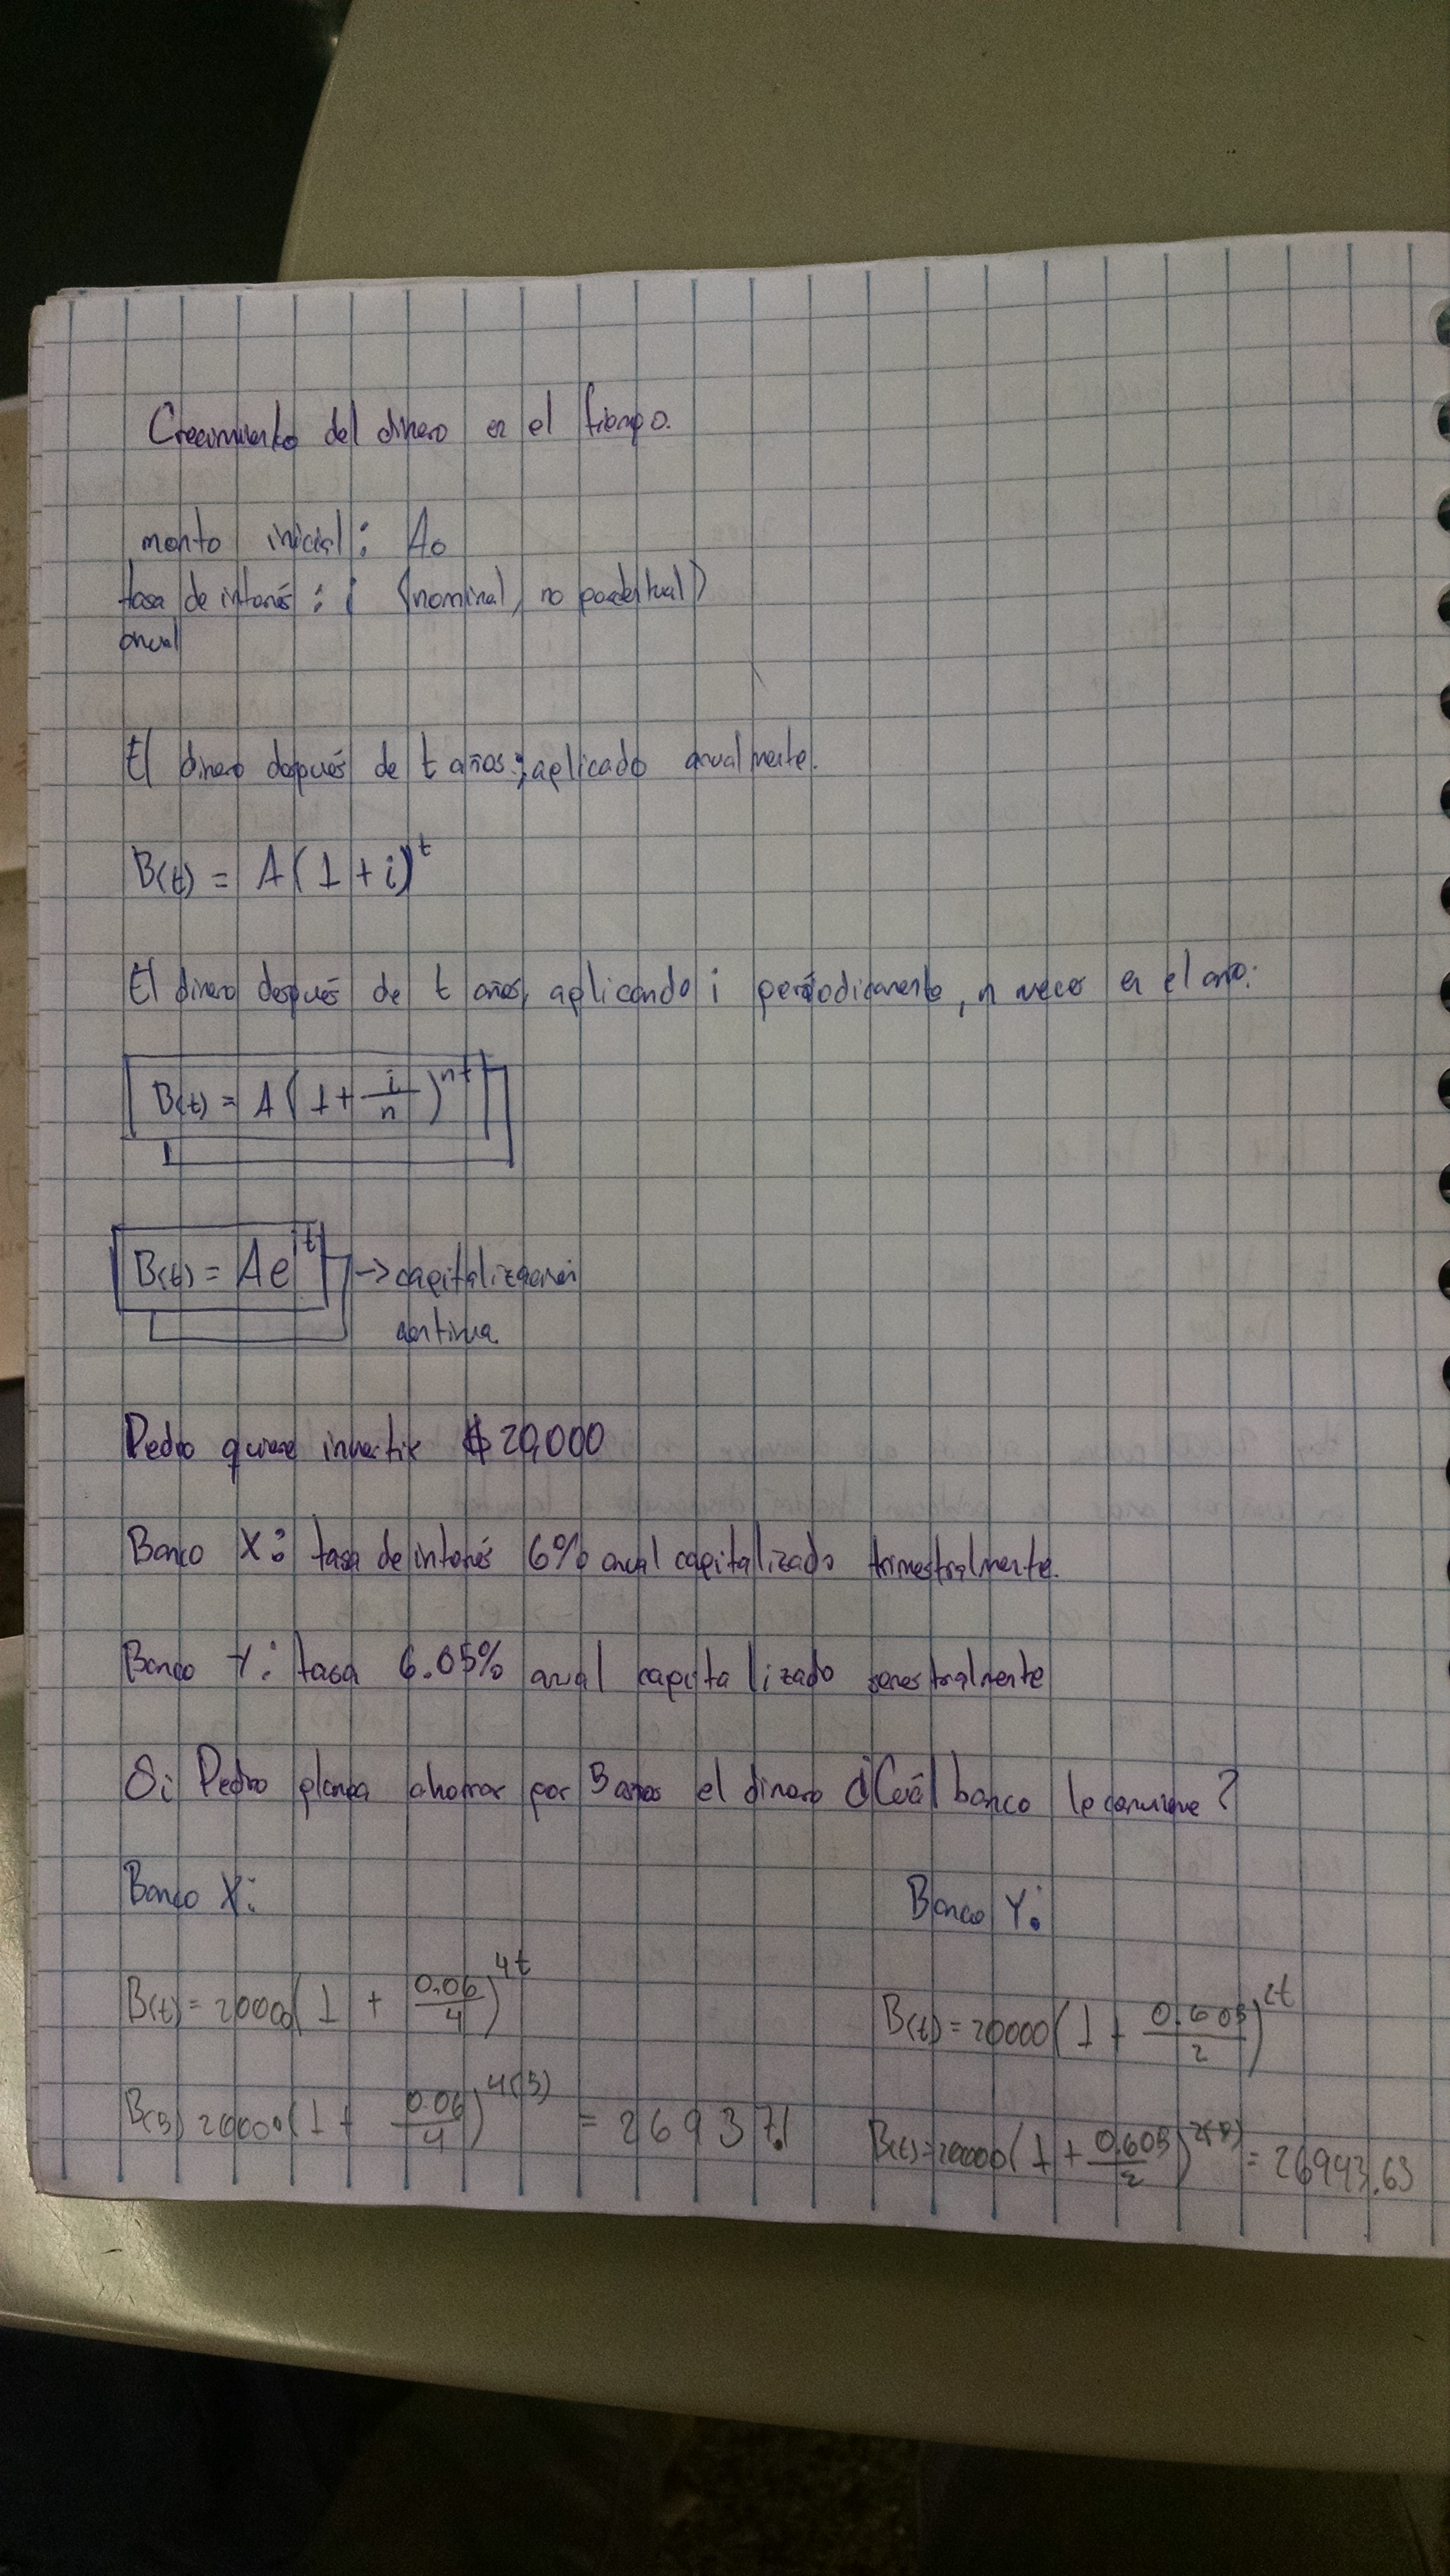 Crecimiento del dinero en el tiempo.
monto inicial: A₀
tasa de interés: i (nominal, no porcentual)
anual
El dinero después de t años; aplicado anualmente.
B(t) = A(1+i)^t
El dinero después de t años, aplicando i periódicamente, n veces en el año:
B(t) = A(1+i/n)^nt
B(t) = Ae^it → capitalización
continua.
Pedro quiere invertir $20,000
Banco X: tasa de interés 6% anual capitalizado trimestralmente.
Banco Y: tasa 6.05% anual capitalizado semestralmente
Si Pedro planea ahorrar por 5 años el dinero ¿Cuál banco le conviene?
Banco X: Banco Y:
B(t) = 20000(1 + 0.06/4)^4t B(t) = 20000(1 + 0.605/2)^2t
B(5) 20000(1 + 0.06/4)^4(5) = 26937.1 B(t) = 20000(1 + 0.605/2)^2(5) = 26943.63